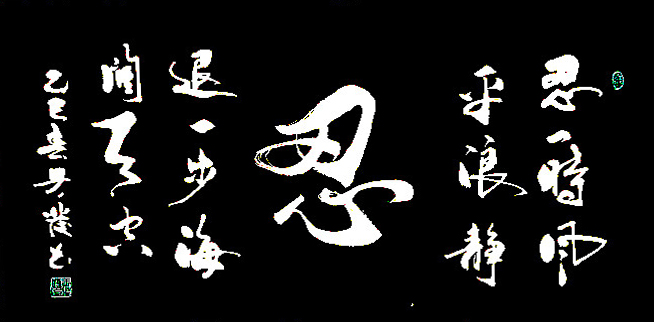 忍一時風
平浪静
忍
退一步海
闊天空
乙巳春